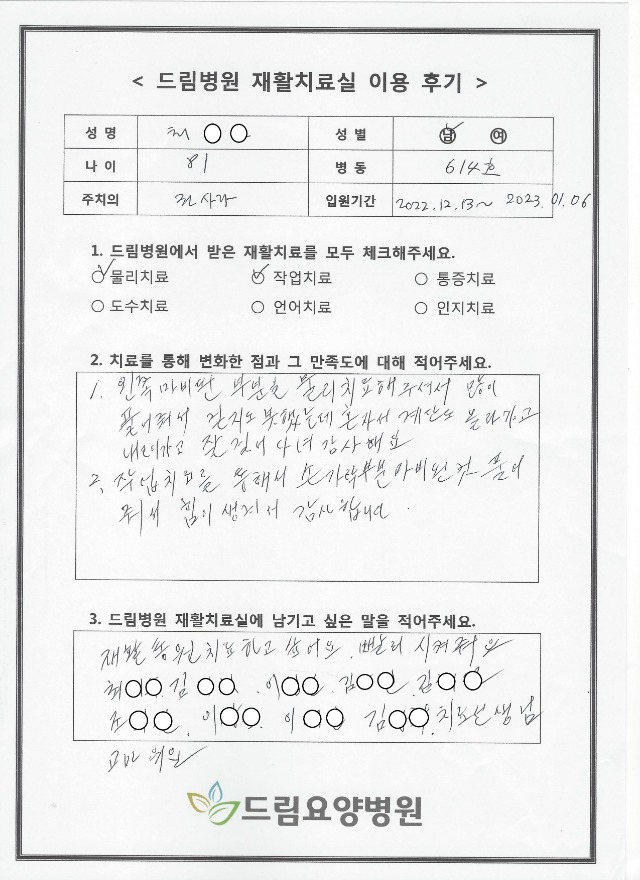 < 드림병원 재활치료실 이용 후기 >
성 명 최 ○○ 성 별 남 여
나 이 81 병 동 614호
주치의 입원기간 2022.12.13~ 2023.01.06
1. 드림병원에서 받은 재활치료를 모두 체크해주세요.
○ 물리치료 ○ 작업치료 ○ 통증치료
○ 도수치료 ○ 언어치료 ○ 인지치료
2. 치료를 통해 변화한 점과 그 만족도에 대해 적어주세요.
1. 왼쪽마비된 부분을 물리치료해주셔서 많이
풀어져서 걷지도 못했는데 혼자서 계단도 올라가고
내려가고 잘 걸어 다녀 감사해요
2. 작업치료를 통해서 손가락부분 마비된것 풀어
줘서 힘이 생겨서 감사합니다.
3. 드림병원 재활치료실에 남기고 싶은 말을 적어주세요.
재발 통원치료하고 싶어요. 빨리 시켜줘요
최○○ 김○○. 이○○. 김○○. 김○○
조○○. 이○○ 이○○ 김○○. 치료선생님
고마워요
드림요양병원